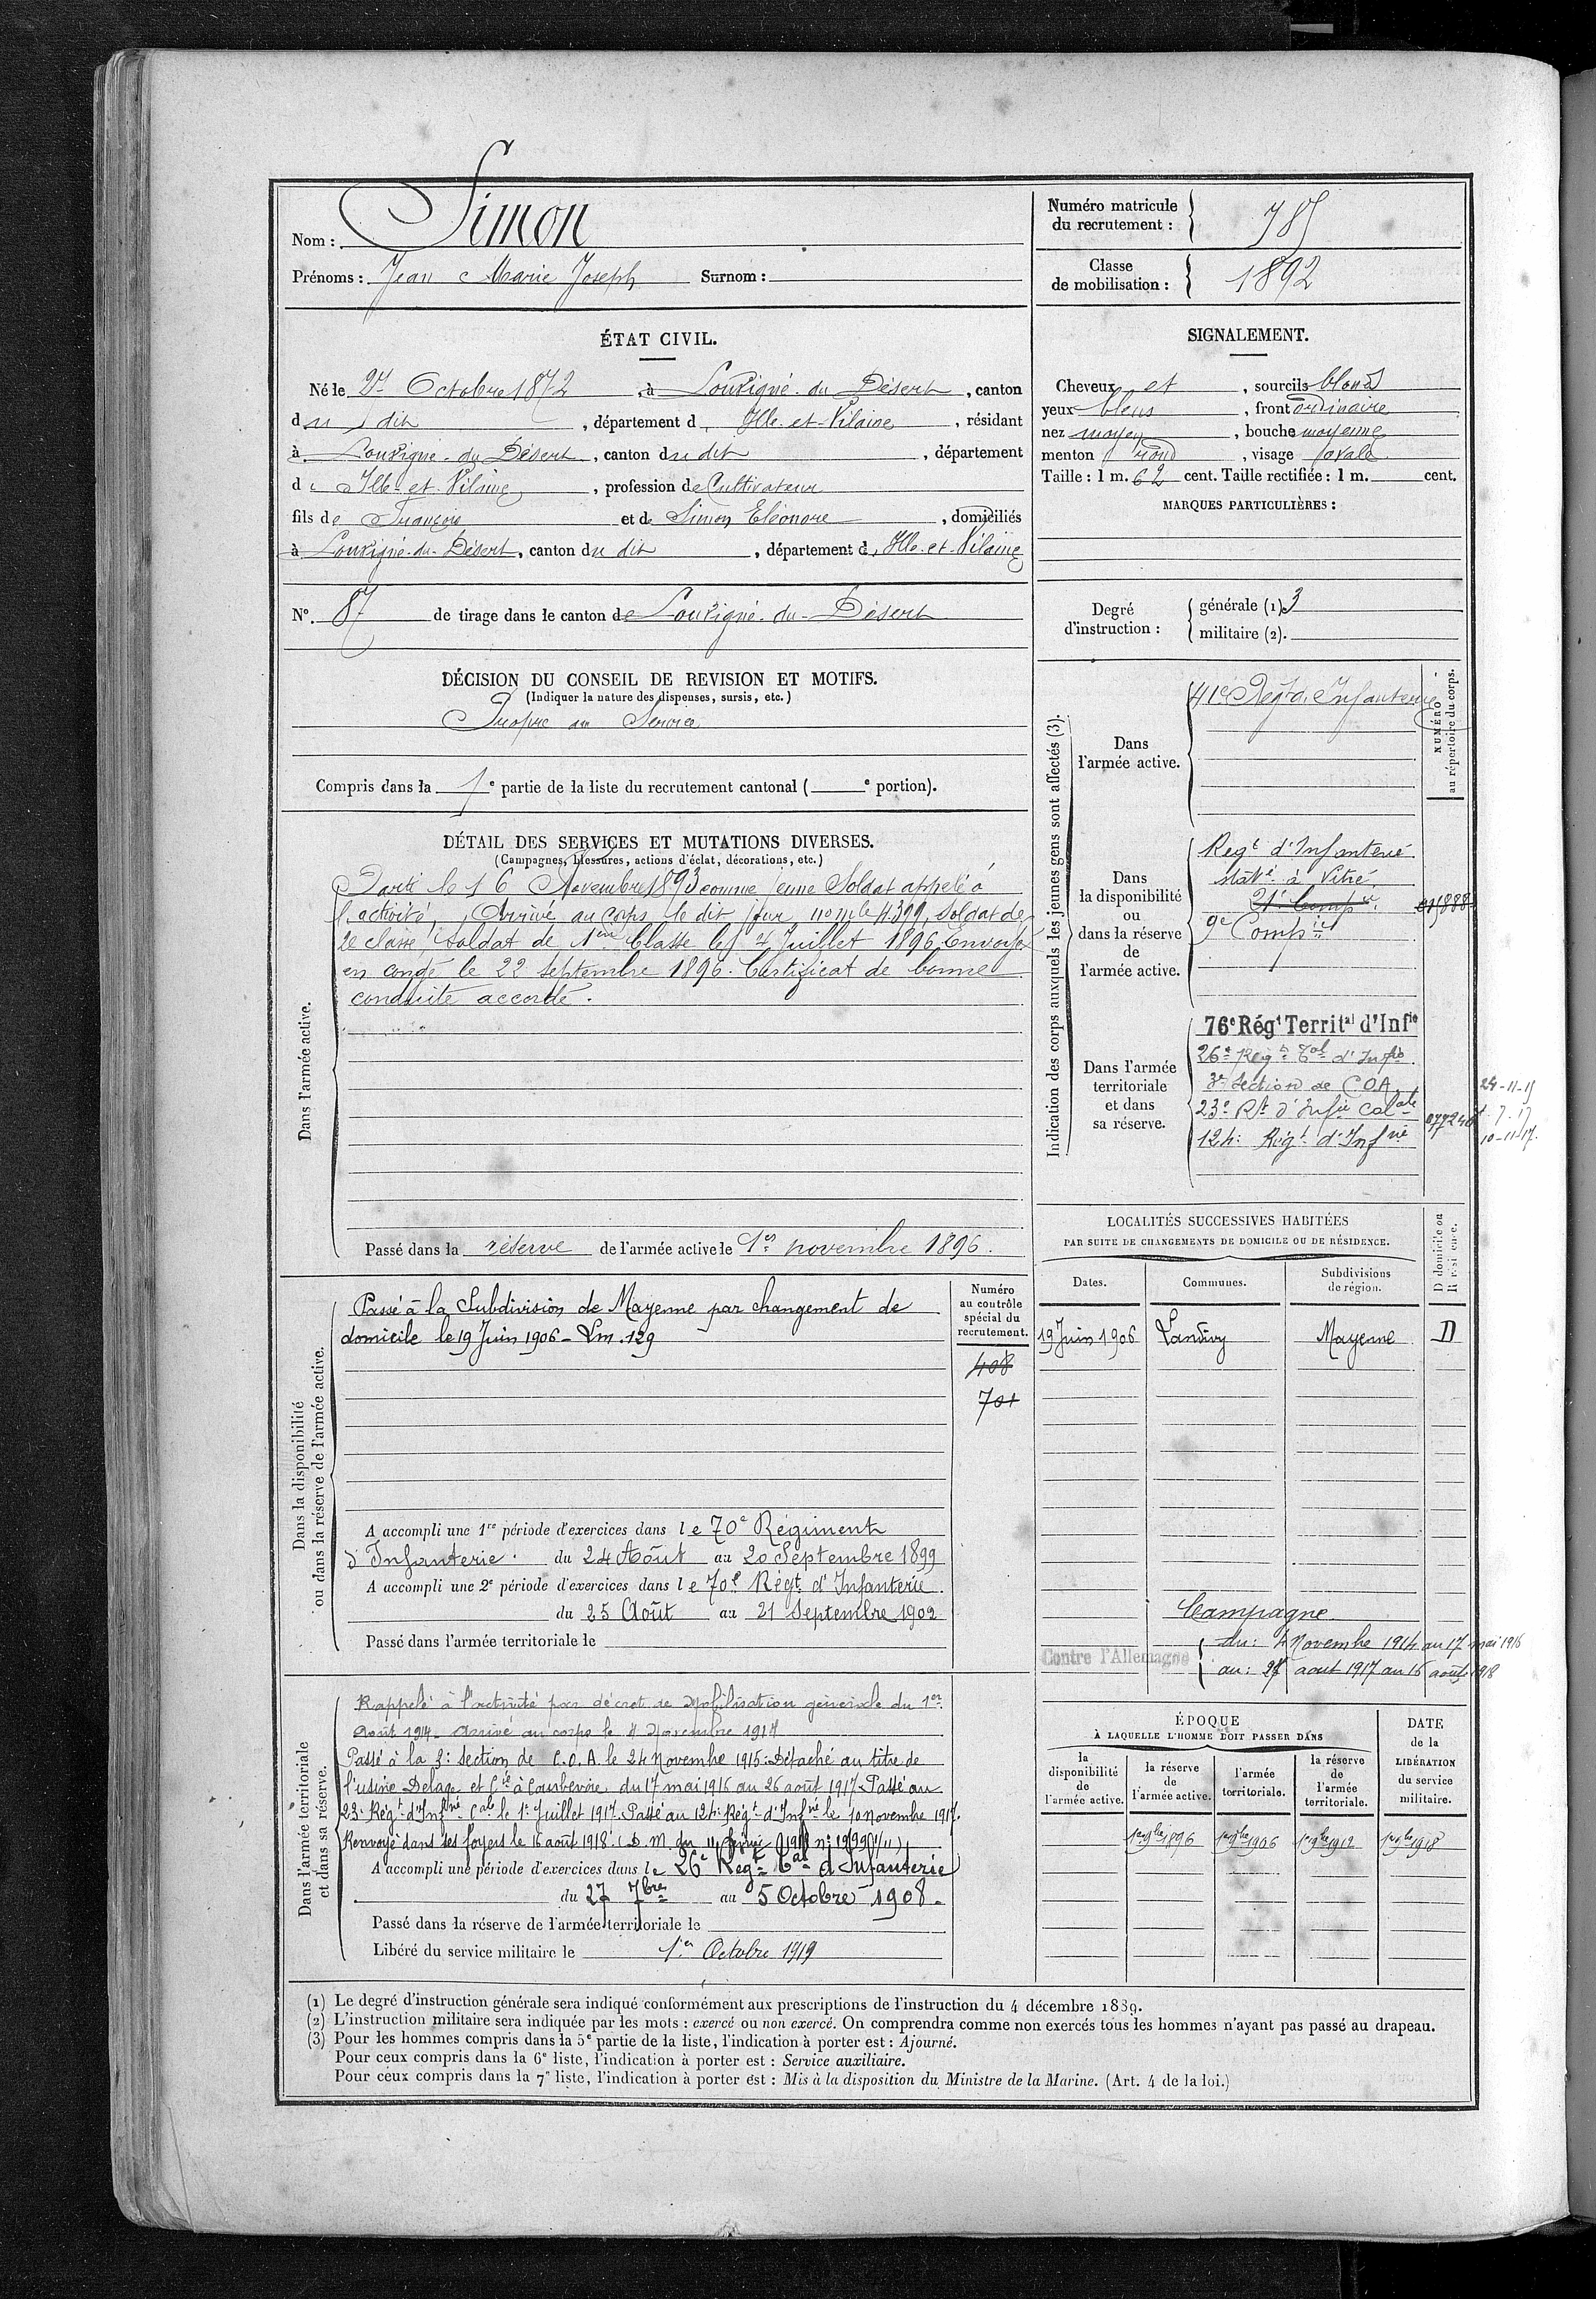 Nom : Simon
Prénoms : Jean Marie Joseph Surnom :
Numéro matricule
du recrutement : 785
Classe
de mobilisation : 1892
ÉTAT CIVIL.
Né le 27 Octobre 1872, à Louvigné-du-Désert, canton
du dit, département d'Ille-et-Vilaine, résidant
à Louvigné-du-Désert, canton du dit, département
d'Ille-et-Vilaine, profession de Cultivateur
fils de François et de Simon Eléonore, domiciliés
à Louvigné-du-Désert, canton du dit, département d'Ille-et-Vilaine
N° 87 de tirage dans le canton de Louvigné-du-Désert
SIGNALEMENT.
Cheveux et, sourcils blonds
yeux bleus, front ordinaire
nez moyen, bouche moyenne
menton rond, visage ovale
Taille : 1 m. 62 cent. Taille rectifiée : 1 m. cent.
MARQUES PARTICULIÈRES :
Degré
d'instruction :
générale (1) 3
militaire (2).
DÉCISION DU CONSEIL DE REVISION ET MOTIFS.
(Indiquer la nature des dispenses, sursis, etc.)
Propre au Service
Compris dans la 1e partie de la liste du recrutement cantonal ( e portion).
DÉTAIL DES SERVICES ET MUTATIONS DIVERSES.
(Campagnes, blessures, actions d'éclat, décorations, etc.)
Dans l'armée active.
Parti le 16 Novembre 1893 comme jeune Soldat appelé à
l'activité, Arrivé au corps le dit jour, no mle 4399, Soldat de
2e classe, Soldat de 1ère Classe le 4 Juillet 1896. Envoyé
en congé le 22 septembre 1896. Certificat de bonne
conduite accordé.
Passé dans la réserve de l'armée active le 1er novembre 1896.
Indication des corps auxquels les jeunes gens sont affectés (3).
NUMÉRO
au répertoire du corps.
Dans
l'armée active.
41e Régt d'Infanterie
Dans
la disponibilité
ou
dans la réserve
de
l'armée active.
Regt d'Infanterie
statné à Vitré
21e Compie
9e Compie
Dans l'armée
territoriale
et dans
sa réserve.
76e Régt Territal d'Infie
26e Regt Tal d'Infie
3e Section de C.O.A. 24-11-15
23e Rt d'Infie Colale 7.17
124e Régt d'Infrie 10-11-17.
Dans la disponibilité
ou dans la réserve de l'armée active.
Passé à la Subdivision de Mayenne par changement de
domicile le 19 Juin 1906 - Lm. 129
Numéro
au contrôle
spécial du
recrutement.
408
701
A accompli une 1re période d'exercices dans le 70e Régiment
d'Infanterie. du 24 Août au 20 Septembre 1899
A accompli une 2e période d'exercices dans le 70e Régt d'Infanterie.
du 25 Août au 21 Septembre 1902
Passé dans l'armée territoriale le
LOCALITÉS SUCCESSIVES HABITÉES
PAR SUITE DE CHANGEMENTS DE DOMICILE OU DE RÉSIDENCE.
Dates. Communes. Subdivisions
de région. D domicile ou
R résidence.
19 Juin 1906 Landivy Mayenne D
Campagne
Contre l'Allemagne
du : 4 Novembre 1914 au 17 mai 1916
au : 27 aout 1917 au 16 août 1918
Dans l'armée territoriale
et dans sa réserve.
Rappelé à l'activité par décret de mobilisation générale du 1er
Août 1914. Arrivé au corps le 4 Novembre 1914
Passé à la 3e section de C.O.A. le 24 Novembre 1915. Détaché au titre de
l'usine Delage et Cie à Courbevoie, du 17 mai 1916 au 26 aout 1917. Passé au
23e Régt d'Infrie Cale le 1e Juillet 1917. Passé au 124e Régt d'Infrie le 10 novembre 1917.
Renvoyé dans ses foyers le 16 août 1918.
A accompli une période d'exercices dans le 26e Regt Tal d'Infanterie
du 27 7bre au 5 Octobre 1908.
Passé dans la réserve de l'armée territoriale le
Libéré du service militaire le 1er Octobre 1919
ÉPOQUE
À LAQUELLE L'HOMME DOIT PASSER DANS
la
disponibilité
de
l'armée active.
la réserve
de
l'armée active.
l'armée
territoriale.
la réserve
de
l'armée
territoriale.
DATE
de la
LIBÉRATION
du service
militaire.
1er 9bre 1896 1er 9bre 1906 1er 9bre 1912 1er 9bre 1918
(1) Le degré d'instruction générale sera indiqué conformément aux prescriptions de l'instruction du 4 décembre 1889.
(2) L'instruction militaire sera indiquée par les mots : exercé ou non exercé. On comprendra comme non exercés tous les hommes n'ayant pas passé au drapeau.
(3) Pour les hommes compris dans la 5e partie de la liste, l'indication à porter est : Ajourné.
Pour ceux compris dans la 6e liste, l'indication à porter est : Service auxiliaire.
Pour ceux compris dans la 7e liste, l'indication à porter est : Mis à la disposition du Ministre de la Marine. (Art. 4 de la loi.)